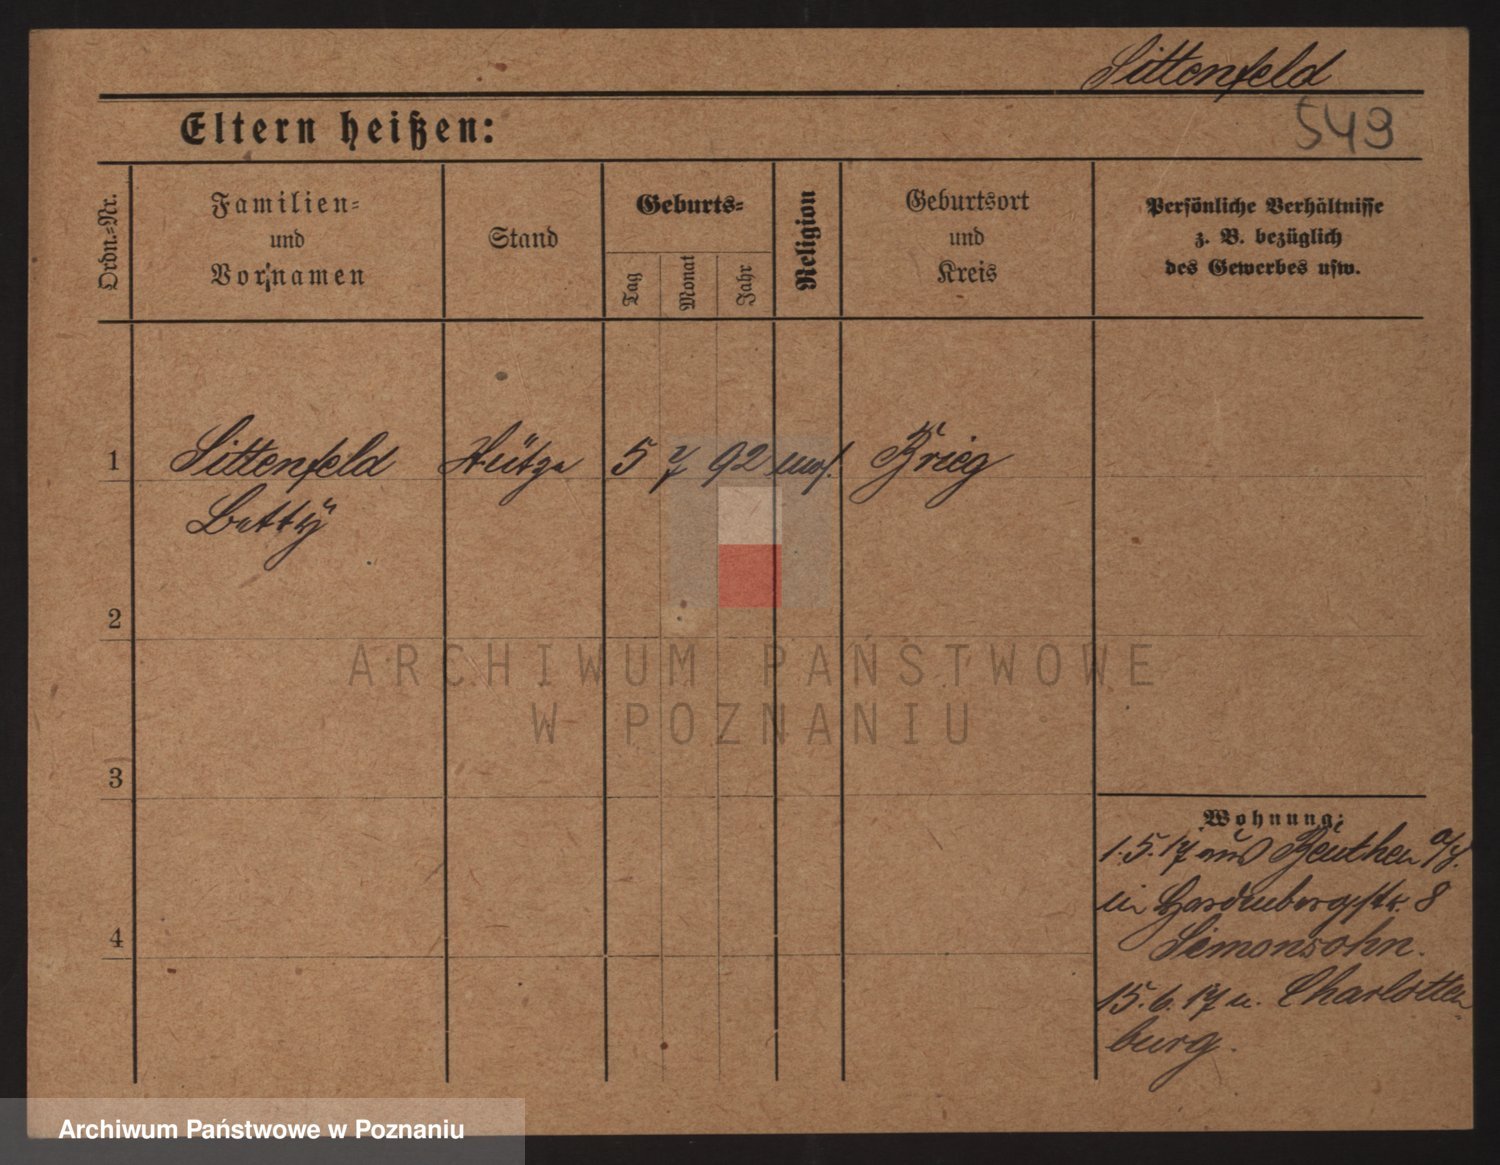 Sittenfeld
Eltern heißen:
549
Ordn.-Nr.
Familien-
und
Vornamen
Stand
Geburts-
Tag
Monat
Jahr
Religion
Geburtsort
und
Kreis
Persönliche Verhältnisse
z. B. bezüglich
des Gewerbes usw.
1
Sittenfeld
Betty
Stütze
5
7
92
mos.
Brieg
2
ARCHIWUM PAŃSTWOWE
W POZNANIU
3
4
Wohnung:
1.5.17 aus Beuthen
in Hardenbergstr. 8
Simonsohn.
15.6.17 n. Charlotten-
burg.
Archiwum Państwowe w Poznaniu